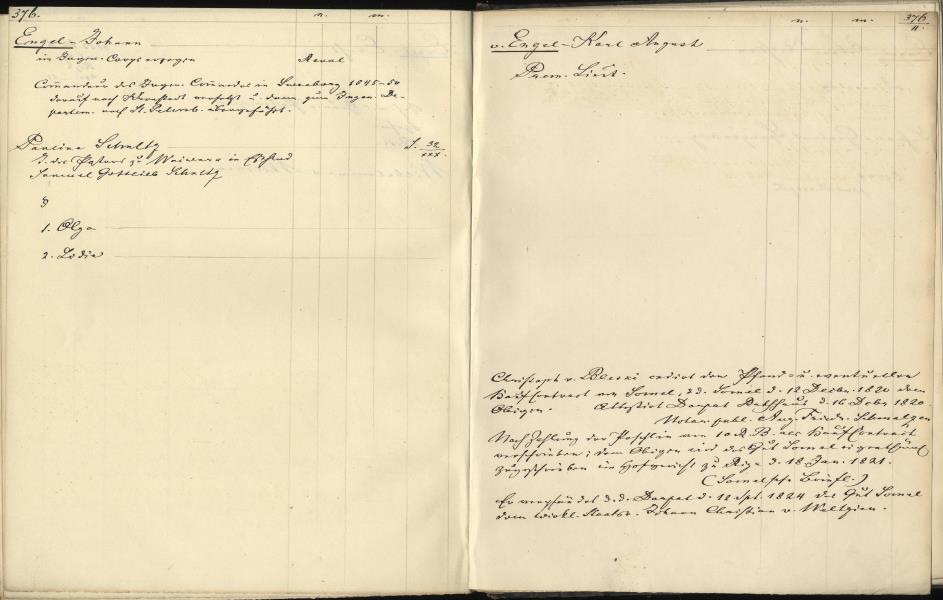 376.
n. m.
Engel - Johann
im Ingen. Corps erzogen Reval
Commandeur des Ingen. Commandos in Sveaborg 1845-50
darauf nach Kronstadt versetzt u. dann zum Ingen. De-
partem. nach St. Petersb. übergeführt.
Pauline Schultz J. 32/XXX.
T. des Pastors zu Waiwara in Estland
Samuel Gottlieb Schultz
§
1. Olga
2. Lydia
n. m. 376/II.
v. Engel - Karl August
Prem. Lieut.
Christoph v. cedirt den Pfand- u. eventuellen
Kaufcontract um Somel, d. d. Somel d. 12 Decbr. 1820 dem
Obigen. Attestirt Dorpat Rathhaus d. 16 Decbr 1820.
Notar. publ. Aug. Friedr. Schmalzen
Nach Zahlung der Poschlin von 10 R. B. als Kaufcontract
verschrieben; dem Obigen wird das Gut Somel eigenthüml.
zugeschrieben im Hofgericht zu Riga d. 18 Jan. 1821.
(Somelsche Briefl.)
Er verpfändet d. d. Dorpat d. 12 Spt. 1824 das Gut Somel
dem wirkl. Staatsr. Johann Christian v.